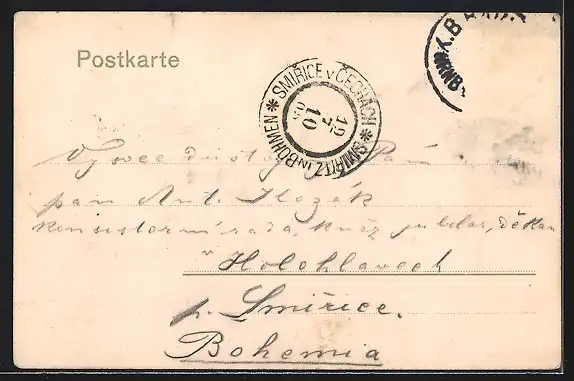 Postkarte
K.B
* SMIŘICE v ČECHÁCH * SMIRITZ in BÖHMEN
19
10
Vysoce důstojný Pán
pan Ant. Hozák
konsistorní rada, kněz jubilar, děkan
v Holohlavech
p. Smiřice.
Bohemia